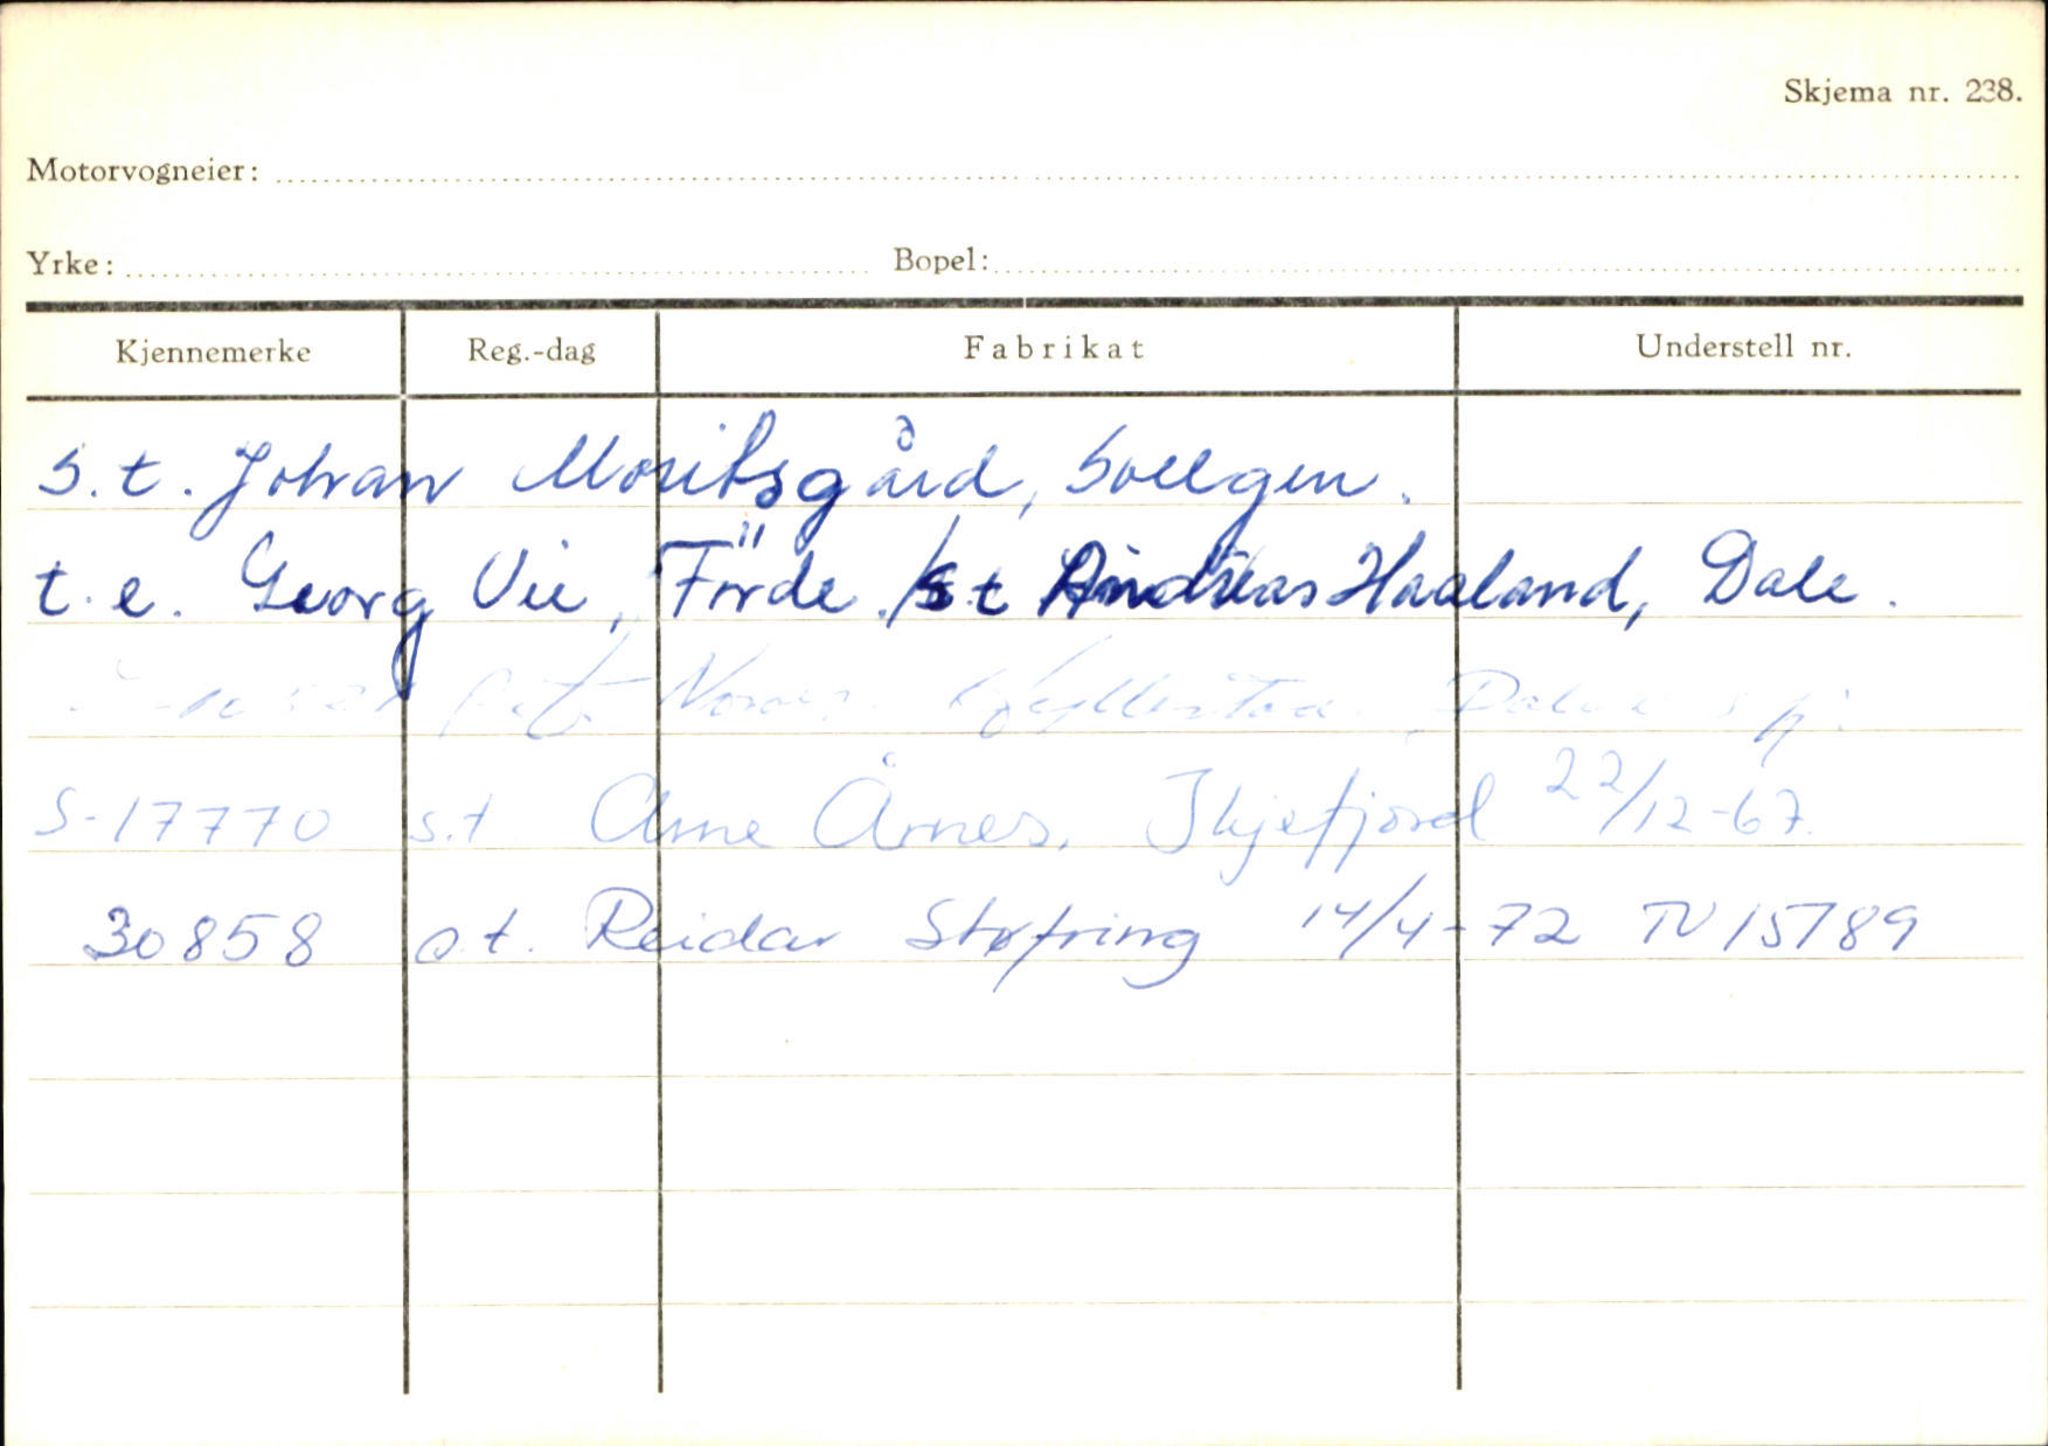 Skjema nr. 238.
Motorvogneier:
Yrke: Bopel:
Kjennemerke Reg.-dag Fabrikat Understell nr.
s.t. Johan Moritsgård,
t.e. Georg Vie, Förde. / s.t Andreas Haaland, Dale.
S-17770 s.t Arne Årnes, 22/12-67.
30858 s.t. Reidar Støfring 14/4-72 TV 15789